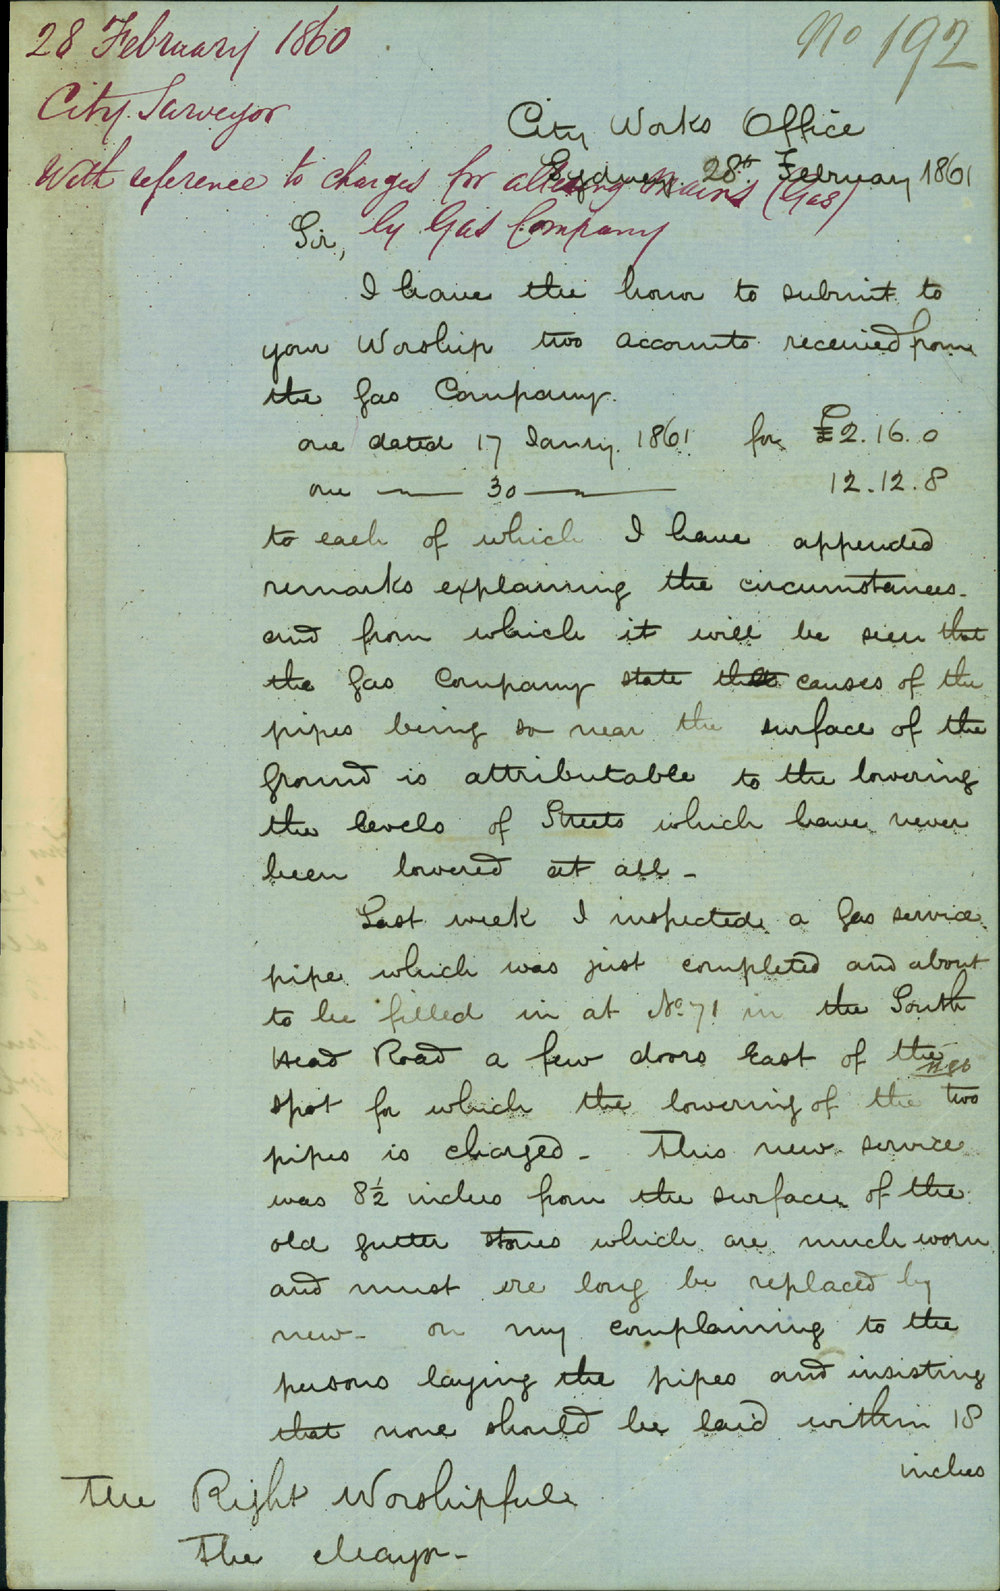 28 February 1860
No 192
City Surveyor
City Works Office
Sydney 28th February 1861
With reference to charges for altering Mains (Gas)
by Gas Company
Sir,
I have the honor to submit to
your Worship two accounts received from
the Gas Company.
one dated 17 Janry. 1861 for £2.16.0
one — 30 — 12.12.8
to each of which I have appended
remarks explaining the circumstances.
and from which it will be seen that
the Gas Company state the causes of the
pipes being so near the surface of the
ground is attributable to the lowering
the levels of Streets which have never
been lowered at all -
Last week I inspected a Gas service
pipe which was just completed and about
to be filled in at No. 71 in the South
Head Road a few doors East of the
spot for which the lowering of the two
pipes is charged - This new service
was 8½ inches from the surface of the
old gutter stones which are much worn
and must ere long be replaced by
new - on my complaining to the
persons laying the pipes and insisting
that none should be laid within 18
inches
The Right Worshipful
The Mayor -